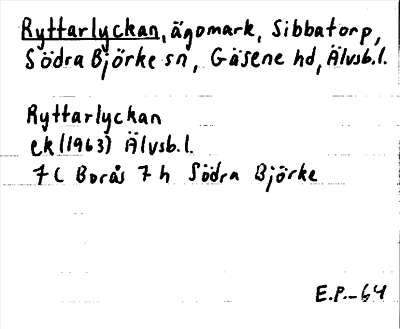 Ryttarlyckan, ägomark, Sibbatorp,
Södra Björke sn, Gäsene hd, Älvsb.l.
Ryttarlyckan
ek (1963) Älvsb.l.
7C Borås 7h Södra Björke
E.P.-64